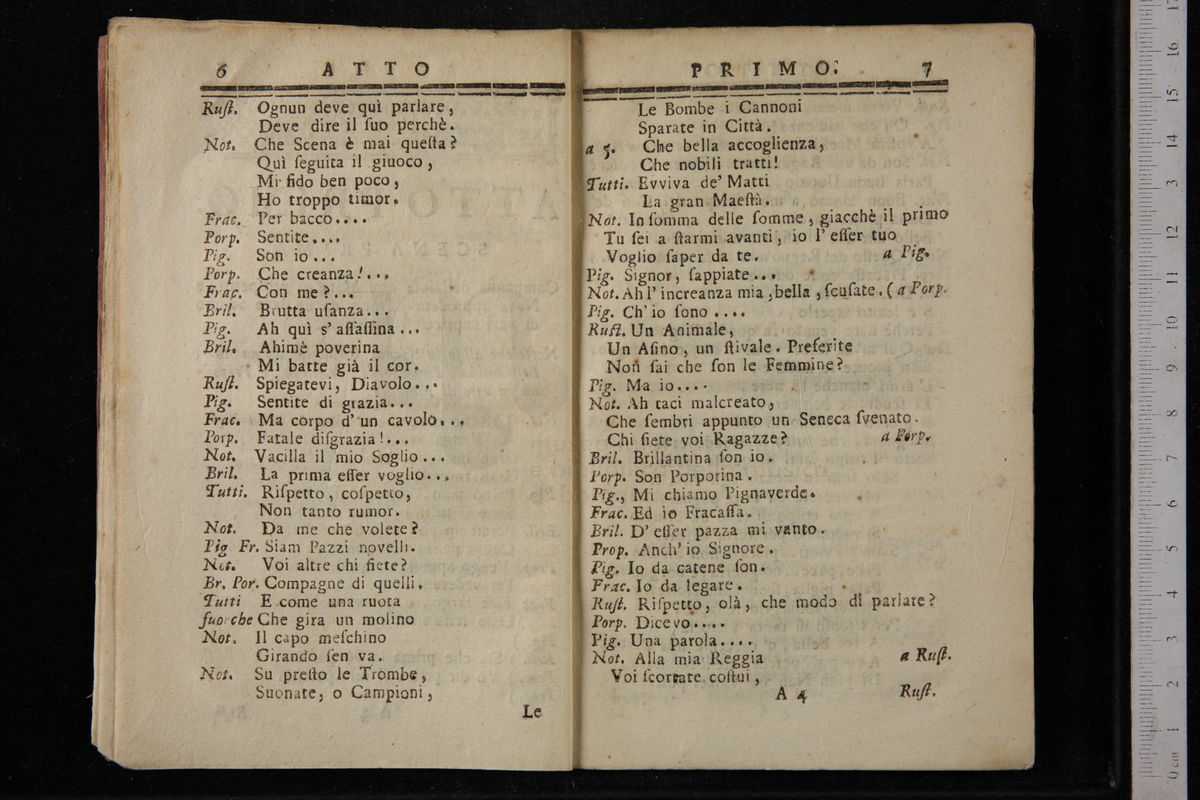 6 ATTO
Ruſt. Ognun deve quì parlare,
Deve dire il ſuo perchè.
Not. Che Scena è mai queſta?
Quì ſeguita il giuoco,
Mi fido ben poco,
Ho troppo timor.
Frac. Per bacco....
Porp. Sentite....
Pig. Son io...
Porp. Che creanza!...
Frac. Con me?...
Bril. Brutta uſanza...
Pig. Ah quì s' aſſaſſina...
Bril. Ahimè poverina
Mi batte già il cor.
Ruſt. Spiegatevi, Diavolo...
Pig. Sentite di grazia...
Frac. Ma corpo d' un cavolo...
Porp. Fatale diſgrazia!...
Not. Vacilla il mio Soglio...
Bril. La prima eſſer voglio...
Tutti. Riſpetto, coſpetto,
Non tanto rumor.
Not. Da me che volete?
Pig Fr. Siam Pazzi novelli.
Not. Voi altre chi ſiete?
Br. Por. Compagne di quelli.
Tutti E come una ruota
fuorche Che gira un molino
Not. Il capo meſchino
Girando ſen va.
Not. Su preſto le Trombe,
Suonate, o Campioni,
Le
PRIMO. 7
Le Bombe i Cannoni
Sparate in Città.
a 5. Che bella accoglienza,
Che nobili tratti!
Tutti. Evviva de' Matti
La gran Maeſtà.
Not. In ſomma delle ſomme, giacchè il primo
Tu ſei a ſtarmi avanti, io l' eſſer tuo
Voglio ſaper da te. a Pig.
Pig. Signor, ſappiate...
Not. Ah l' increanza mia, bella, ſcuſate. (a Porp.
Pig. Ch' io ſono....
Ruſt. Un Animale,
Un Aſino, un ſtivale. Preferite
Non ſai che ſon le Femmine?
Pig. Ma io....
Not. Ah taci malcreato,
Che ſembri appunto un Seneca ſvenato.
Chi ſiete voi Ragazze? a Porp.
Bril. Brillantina ſon io.
Porp. Son Porporina.
Pig., Mi chiamo Pignaverde.
Frac. Ed io Fracaſſa.
Bril. D' eſſer pazza mi vanto.
Prop. Anch' io Signore.
Pig. Io da catene ſon.
Frac. Io da legare.
Ruſt. Riſpetto, olà, che modo di parlare?
Porp. Dicevo....
Pig. Una parola....
Not. Alla mia Reggia a Ruſt.
Voi ſcortate coſtui,
A 4 Ruſt.